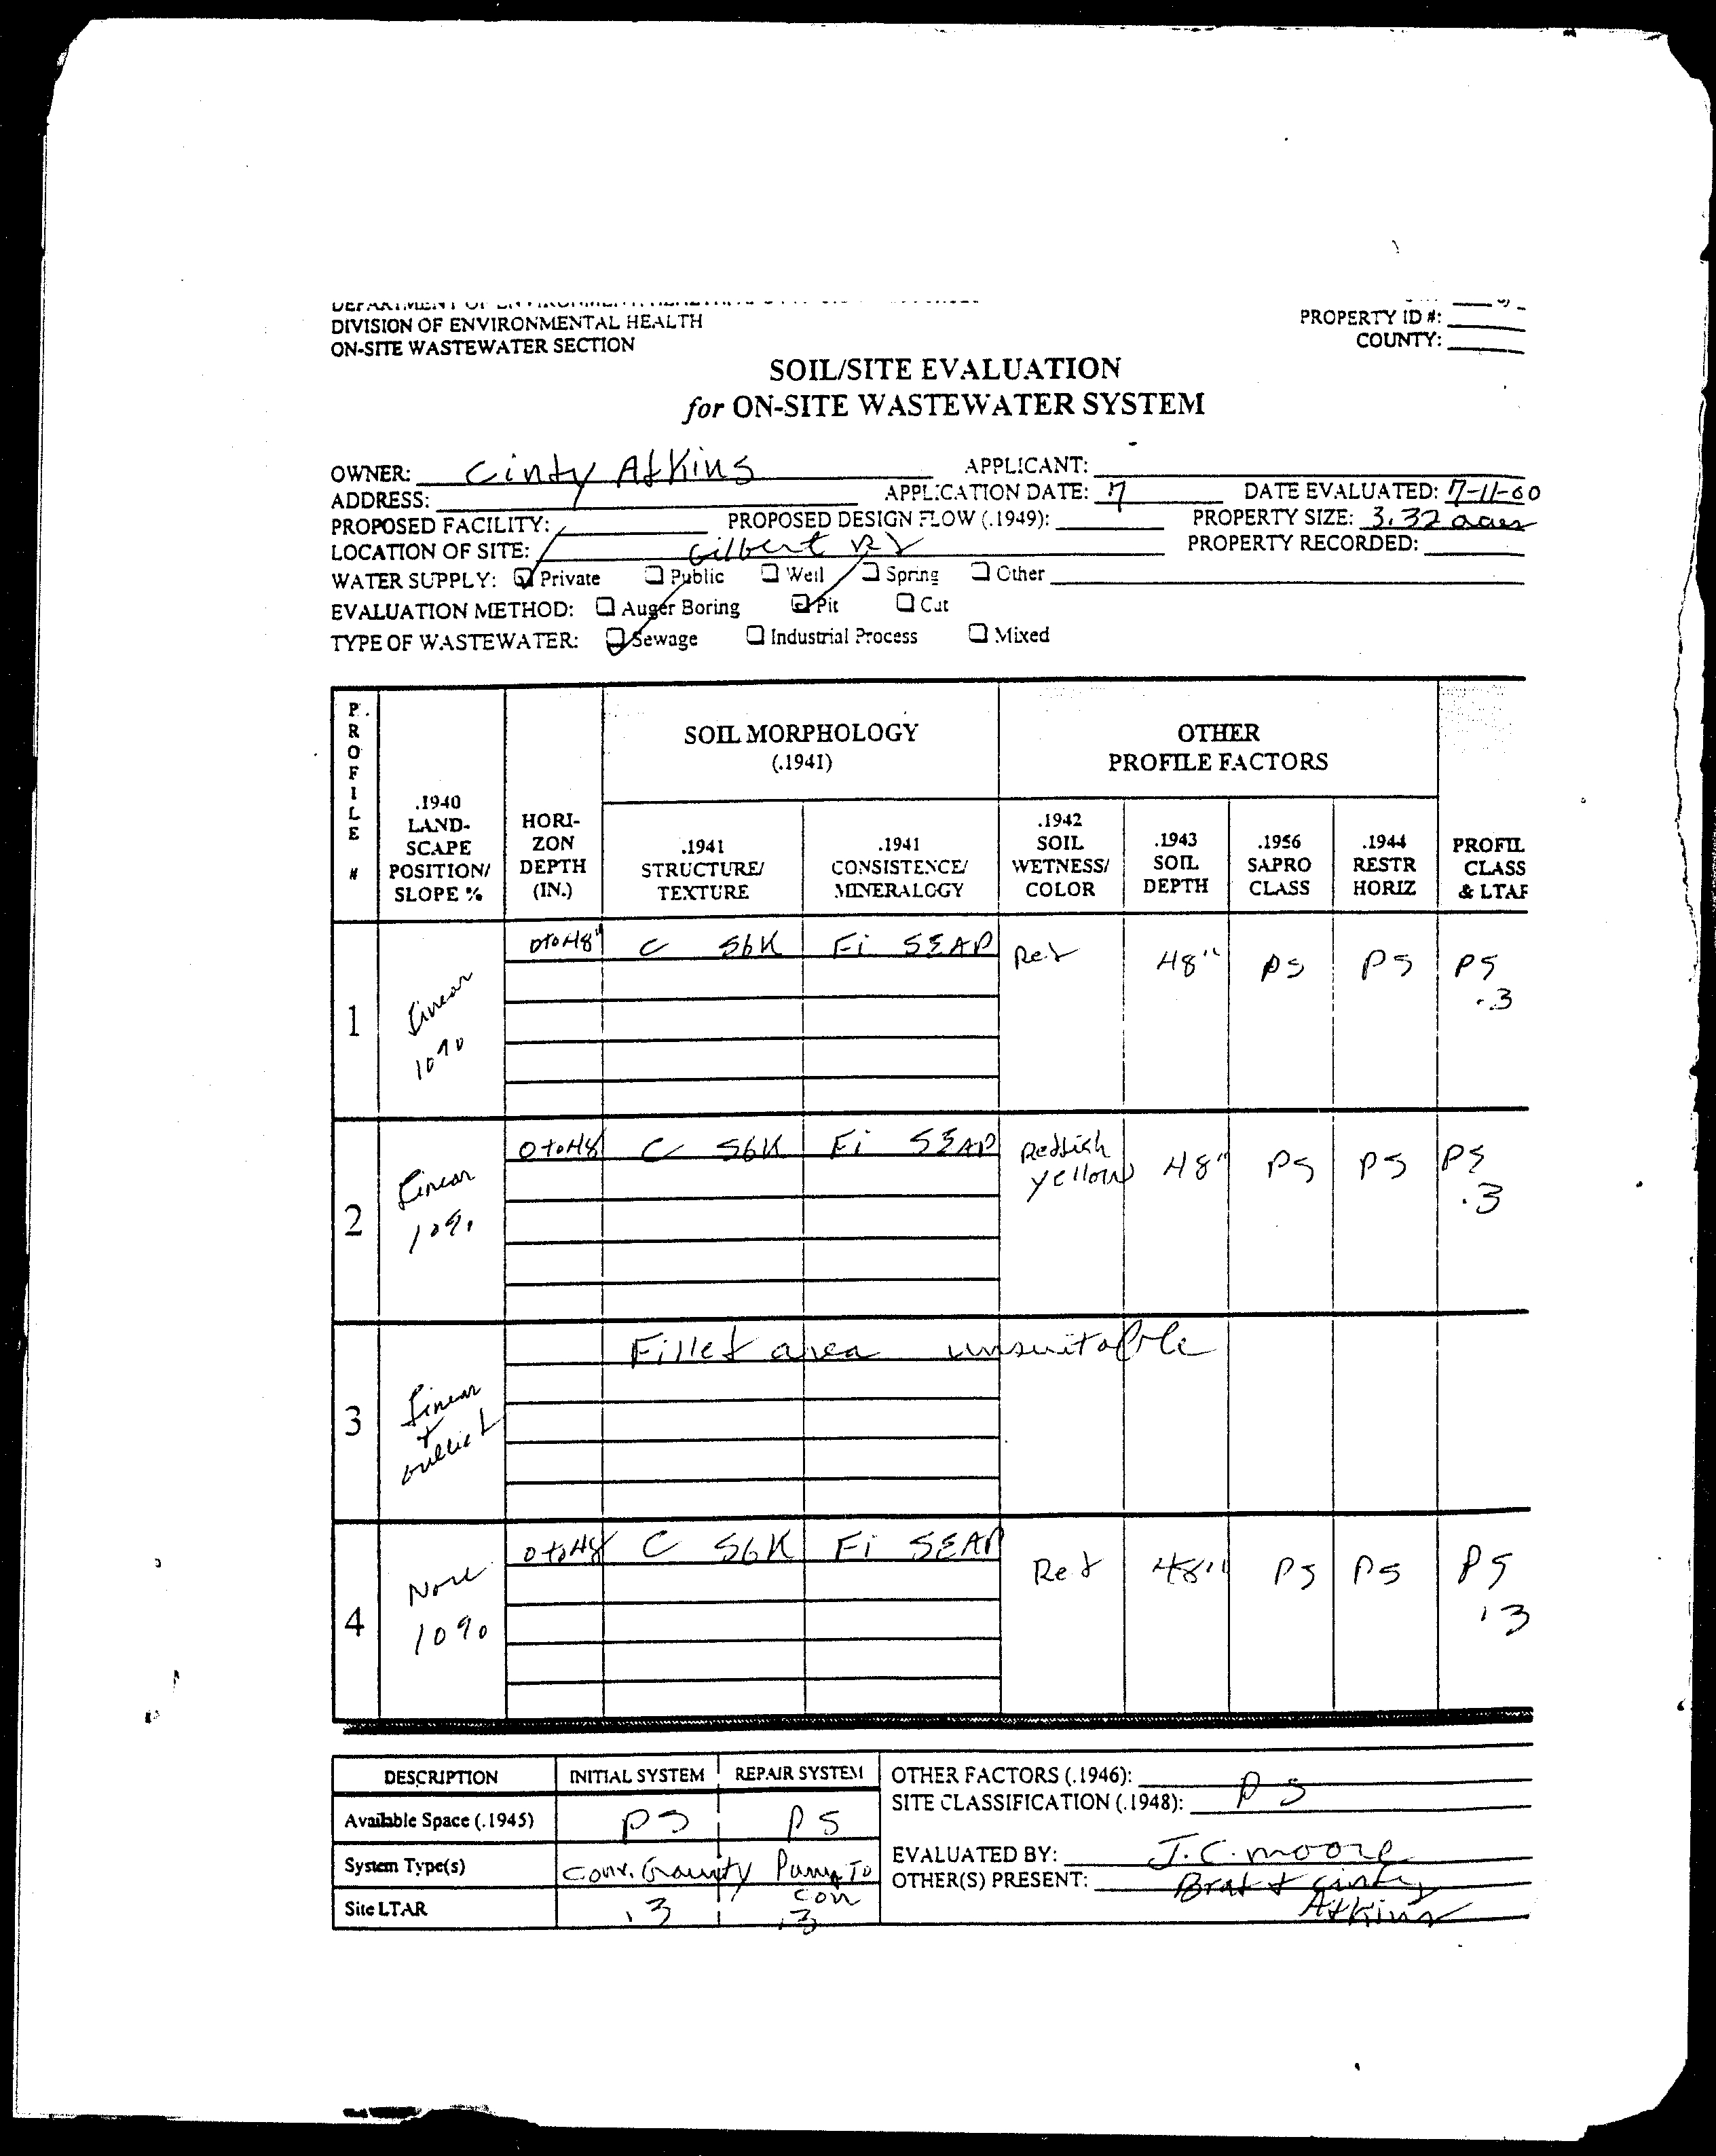 DIVISION OF ENVIRONMENTAL HEALTH
ON-SITE WASTEWATER SECTION
PROPERTY ID #:
COUNTY:
SOIL/SITE EVALUATION
for ON-SITE WASTEWATER SYSTEM
OWNER: Cindy Atkins APPLICANT:
ADDRESS: APPLICATION DATE: DATE EVALUATED: 7-11-00
PROPOSED FACILITY: PROPOSED DESIGN FLOW (.1949): PROPERTY SIZE: 3.32 acres
LOCATION OF SITE: Gilbert Rd PROPERTY RECORDED:
WATER SUPPLY: Private Public Well Spring Other
EVALUATION METHOD: Auger Boring Pit Cut
TYPE OF WASTEWATER: Sewage Industrial Process Mixed
PROFILE #
.1940 LAND-SCAPE POSITION/ SLOPE %
HORI-ZON DEPTH (IN.)
SOIL MORPHOLOGY (.1941)
.1941 STRUCTURE/ TEXTURE
.1941 CONSISTENCE/ MINERALOGY
OTHER PROFILE FACTORS
.1942 SOIL WETNESS/ COLOR
.1943 SOIL DEPTH
.1956 SAPRO CLASS
.1944 RESTR HORIZ
PROFIL CLASS & LTAR
1 Linear 10% 0 to 48" C SBK Fi SEXP Red 48" PS PS PS .3
2 Linear 10% 0 to 48 C SBK Fi SEXP Reddish yellow 48" PS PS PS .3
3 Linear + Filled area unsuitable
4 10% 0 to 48 C SBK Fi SEXP Red 48" PS PS PS .3
DESCRIPTION INITIAL SYSTEM REPAIR SYSTEM
Available Space (.1945) PS PS
System Type(s) Conv. Gravity Pump To Con
Site LTAR .3 .3
OTHER FACTORS (.1946):
SITE CLASSIFICATION (.1948): PS
EVALUATED BY: J.C. Moore
OTHER(S) PRESENT: Brad + Cindy
Atkins